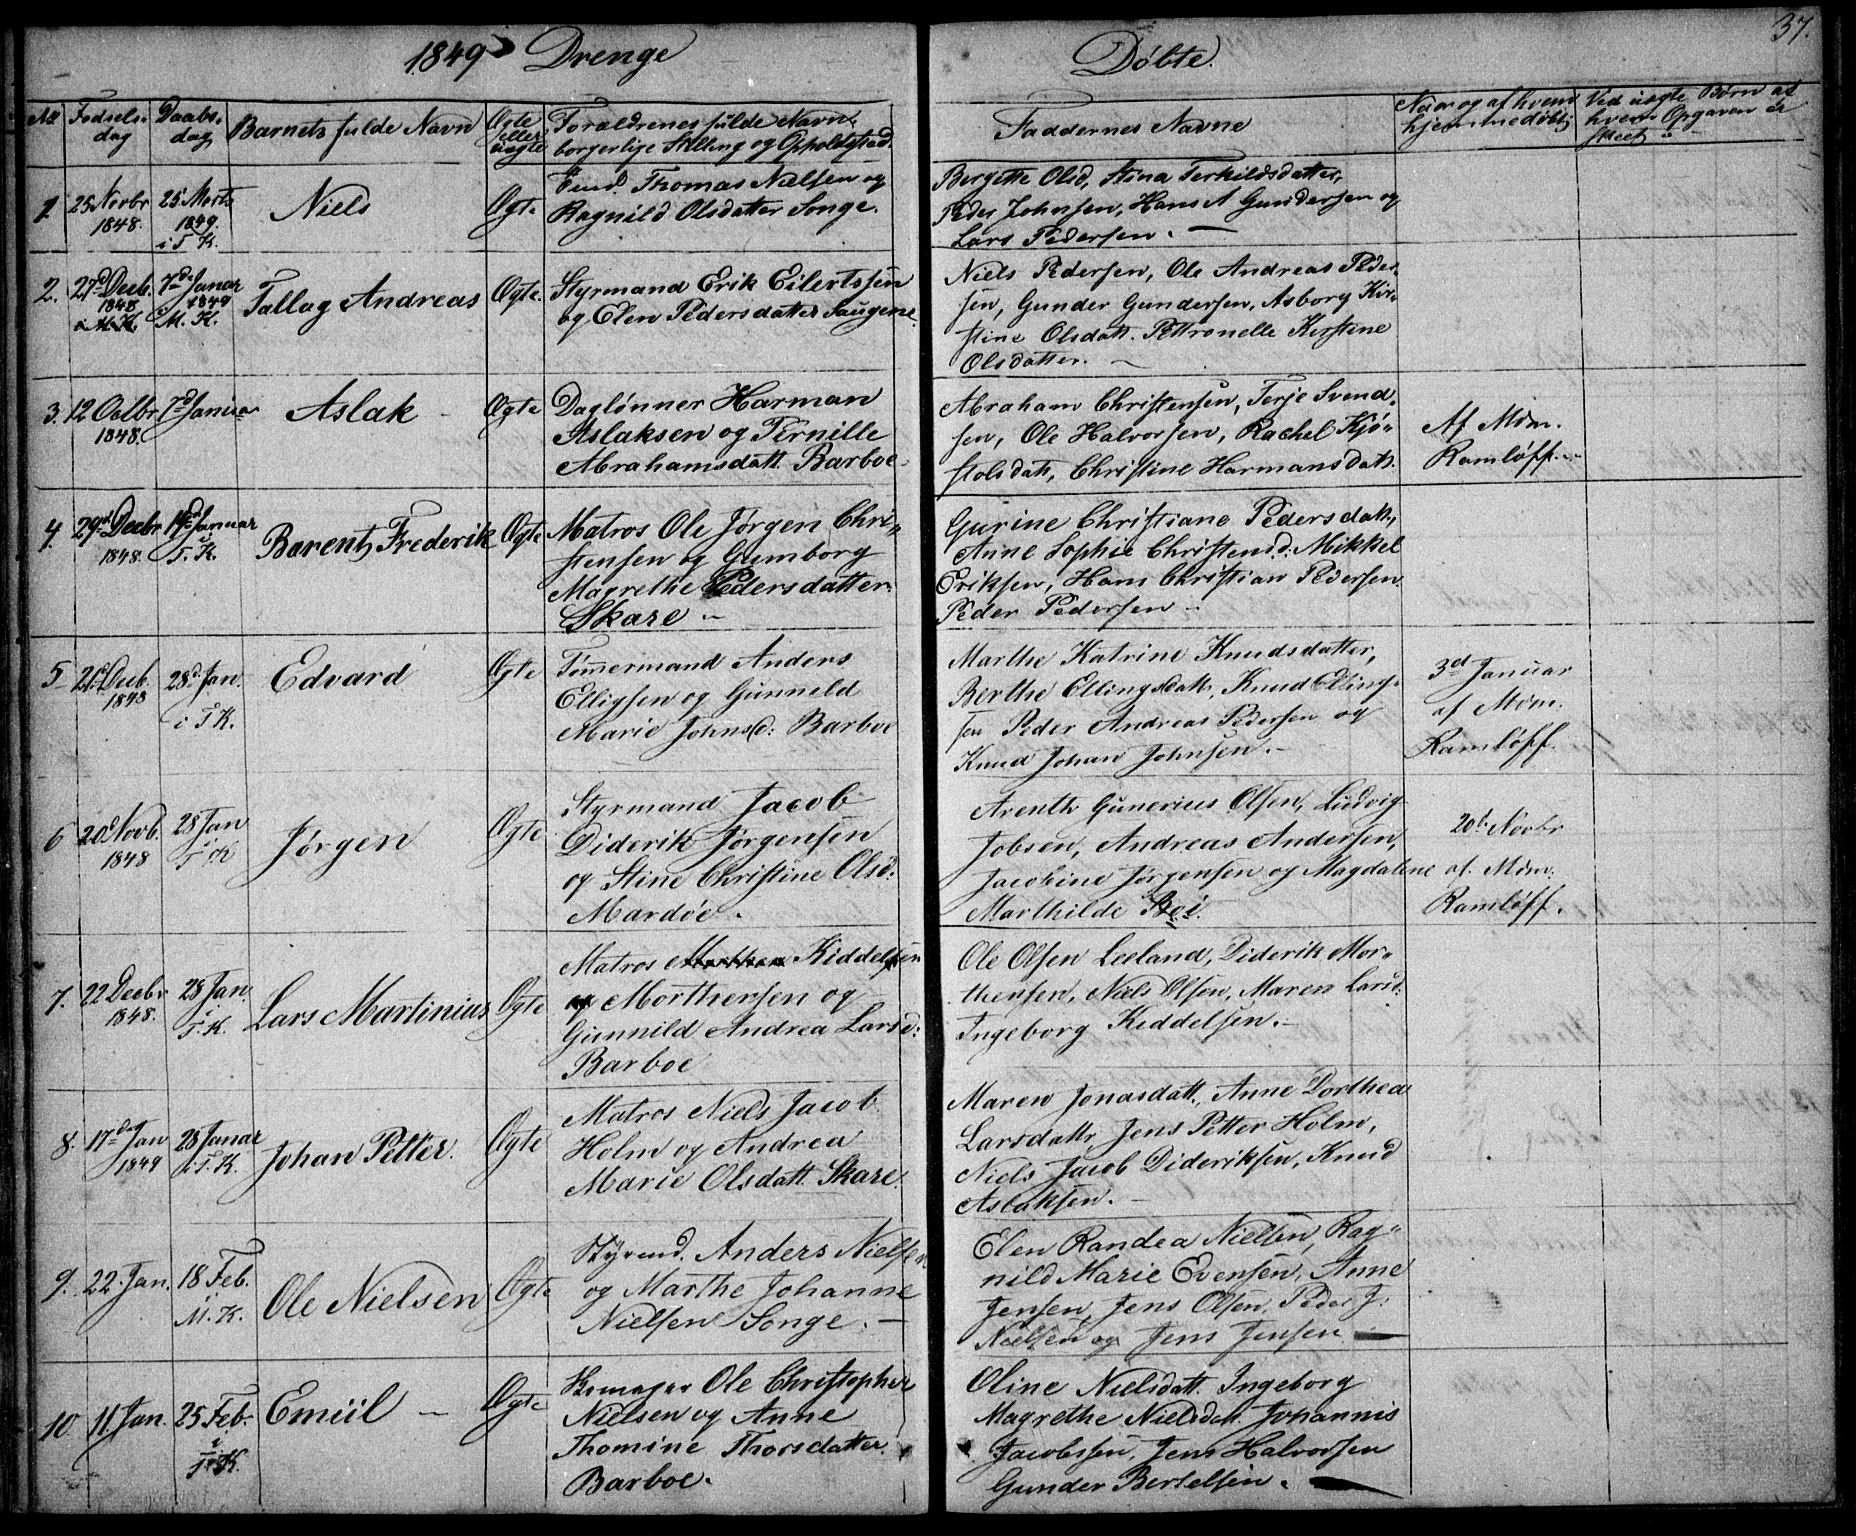 1849 Drenge
Døbte.
37.
No
Fødsels-
dag
Daabs-
dag
Barnets fulde Navn
Ægte
eller
uægte
Forældrenes fulde Navn,
borgerlige Stilling og Opholdsted.
Faddernes Navne
Naar og af hvem
hjemmedøbt
Ved uægte Børn af
hvem Opgaven er
skeet
1.
25 Novbr
1848.
25 Marts
1849.
i T. K.
Niels
Ægte
Thomas Nielsen og
Ragnild Olsdatter Songe.
Bergitte Olsd, Stina Terkildsdatter,
Peder Johnsen, Hans A Gundersen og
Lars Pedersen. —
2.
27d Decb.
1848
i M. K.
7de Januar
1849
M. K.
Tallag Andreas
Ægte.
Styrmand Erik Eilertssen
og Elen Pedersdatter Saugene
Niels Pedersen, Ole Andreas Peder-
sen, Gunder Gundersen, Asborg Kir-
stine Olsdatt. Pettronelle Kirstine
Olsdatter. —
3.
12 Octbr
1848.
7d Januar
Aslak —
Ægte
Daglønner Harman
Aslaksen og Pernille
Abrahamsdatt. Barboe.
Abraham Christensen, Terje Svend-
sen, Ole Halvorsen, Rachel Kjø-
stolsdatt, Christine Harmansdatt.
Af Mdm.
Ramløff. —
4.
29d Decbr
1848.
14d Januar
i
T. K.
Barent Frederik
Ægte
Matros Ole Jørgen Chri-
stensen og Gumborg
Magrethe Pedersdatter
Skare —
Gurine Christiane Pedersdatt,
Anne Sophie Christensd: Mikkel
Eriksen, Hans Christian Pedersen
Peder Pedersen —
5
21d Decb.
1848
28d Jan.
i T. K.
Edvard
Ægte
Tømmermand Anders
Elligsen og Gunneld
Marie Johnsd: Barboe
Marthe Katrine Knudsdatter,
Berthe Ellingsdatt, Knud Elling-
sen Peder Andreas Pedersen og
Knud Johan Johnsen. —
3d Januar
af Mdm.
Ramløff.
6
20d Novb.
1848
28 Jan
i
T. K
Jørgen
Ægte
Styrmand Jacob
Diderik Jørgensen
og Stine Christine Olsd:
Mardøe.
Arenth Gunerius Olsen, Ludvig
Jobsen, Andreas Andersen,
Jacobine Jørgensen og Magdalene
Marthilde Boe.
20d Novbr
af Mdm.
Ramløff.
7.
22 Decbr
1848.
28 Jan
i
T. K.
Lars Martinius
Ægte
Matros Kiddelsen
Morthensen og
Gunnild Andrea Larsd:
Barboe
Ole Olsen Leeland, Diderik Mor-
thensen, Niels Olsen, Maren Larsd:
Ingeborg Kiddelsen. —
8.
17de Jan
1849
28 Januar
i T. K.
Johan Petter.
Ægte
Matros Niels Jacob
Holm og Andrea
Marie Olsdatt. Skare.
Maren Jonasdatt., Anne Dorthea
Larsdatt, Jens Petter Holm,
Niels Jacob Dideriksen, Knud
Aslaksen. —
9.
22. Jan.
18 Feb.
i
M. K.
Ole Nielsen
Ægte
Styrmd. Anders Nielsen
og Marthe Johanne
Nielsen Songe. —
Elen Randea Nielsen, Rag-
nild Marie Evensen, Anne
Jensen, Jens Olsen, Peder J:
Nielsen og Jens Jensen —
10
11 Jan.
25 Feb.
i
T. K.
Emiil —
Ægte
Skomager Ole Christopher
Nielsen og Anne
Thomine Thorsdatter
Barboe.
Oline Nielsdatt. Ingeborg
Magrethe Nielsdatt. Johannis
Jacobsen, Jens Halvorsen
Gunder Bertelsen. —